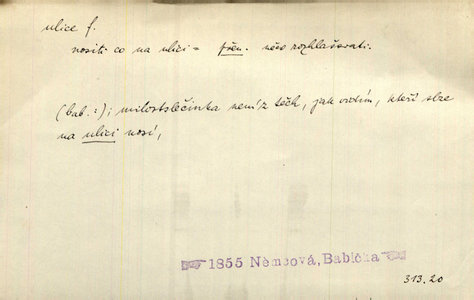 ulice f.
nositi co na ulici = přen. něco rozhlašovati.
(bab.:); milostslečinka není z těch, jak vidím, kteří slze
na ulici nosí,
1855 Němcová, Babička
313.20